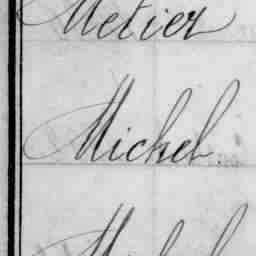 Métier
Michel